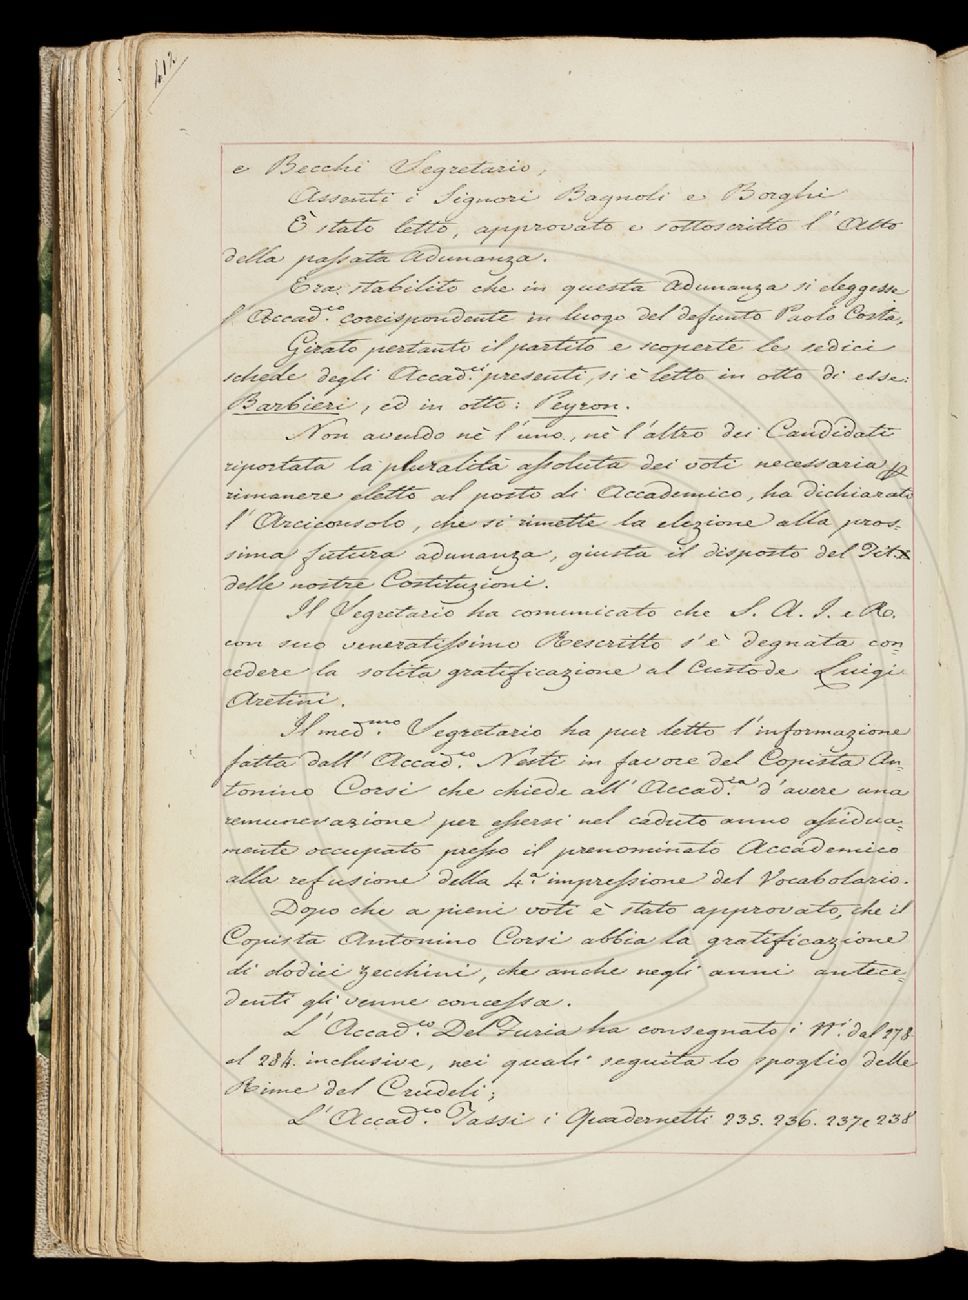 412
e Becchi Segretario;
Assenti i Signori Bagnoli e Borghi
È stato letto, approvato e sottoscritto l'Atto
della passata Adunanza.
Era stabilito che in questa adunanza si eleggesse
l'Accad.co corrispondente in luogo del defunto Paolo Costa.
Girato pertanto il partito e scoperte le sedici
schede degli Accad.ci presenti, si è letto in otto di esse:
Barbieri, ed in otto: Peyron.
Non avendo nè l'uno, nè l'altro dei Candidati
riportata la pluralità assoluta dei voti necessaria p
rimanere eletto al posto di Accademico, ha dichiarato
l'Arciconsolo, che si rimette la elezione alla pros=
sima futura adunanza, giusta il disposto del Tit. X
delle nostre Costituzioni.
Il Segretario ha comunicato che S. A. I. e R.
con suo veneratissimo Rescritto s'è degnata con=
cedere la solita gratificazione al Custode Luigi
Aretini.
Il med.mo Segretario ha pur letto l'informazione
fatta dall'Accad.co Nesti in favore del Copista An=
tonino Corsi che chiede all'Accad.ia d'avere una
remunerazione per essersi nel caduto anno assidua=
mente occupato presso il prenominato Accademico
alla refusione della 4.a impressione del Vocabolario.
Dopo che a pieni voti è stato approvato, che il
Copista Antonino Corsi abbia la gratificazione
di dodici zecchini, che anche negli anni antece=
denti gli venne concessa.
L'Accad.co Del Furia ha consegnato i N.i dal 278
al 284. inclusive, nei quali seguita lo spoglio delle
Rime del Crudeli;
L'Accad.co Tassi i Quadernetti 235. 236. 237 e 238